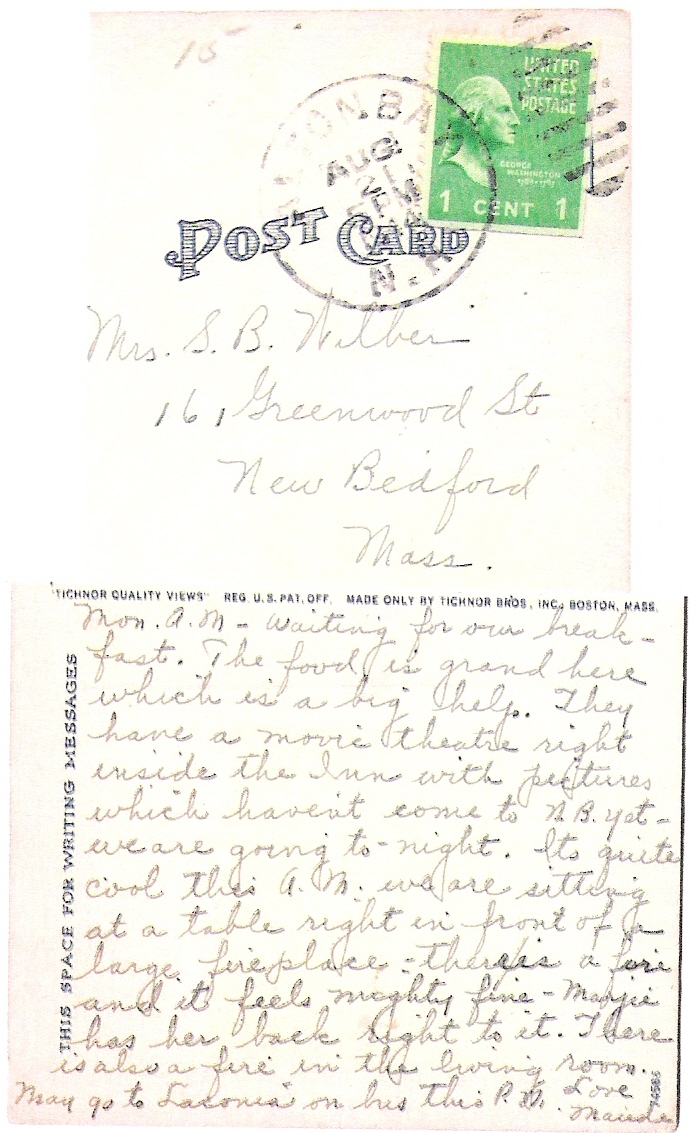 15
UNITED
STATES
POSTAGE
GEORGE
WASHINGTON
1 CENT 1
TON BAY
AUG
21
PM
N.H.
POST CARD
Mrs. S. B. Wilber
161 Greenwood St
New Bedford
Mass.
"TICHNOR QUALITY VIEWS" REG. U.S. PAT. OFF. MADE ONLY BY TICHNOR BROS., INC., BOSTON, MASS.
THIS SPACE FOR WRITING MESSAGES
Mon. A.M - Waiting for our break-
fast. The food is grand here
which is a big help. They
have a movie theatre right
inside the Inn with pictures
which haven't come to N.B. yet -
we are going to-night. Its quite
cool this A.M. we are sitting
at a table right in front of a
large fireplace - there is a fire
and it feels mighty fine - Margie
has her back right to it. There
is also a fire in the living room.
May go to Laconia on bus this P.M. Love
Maude
74585